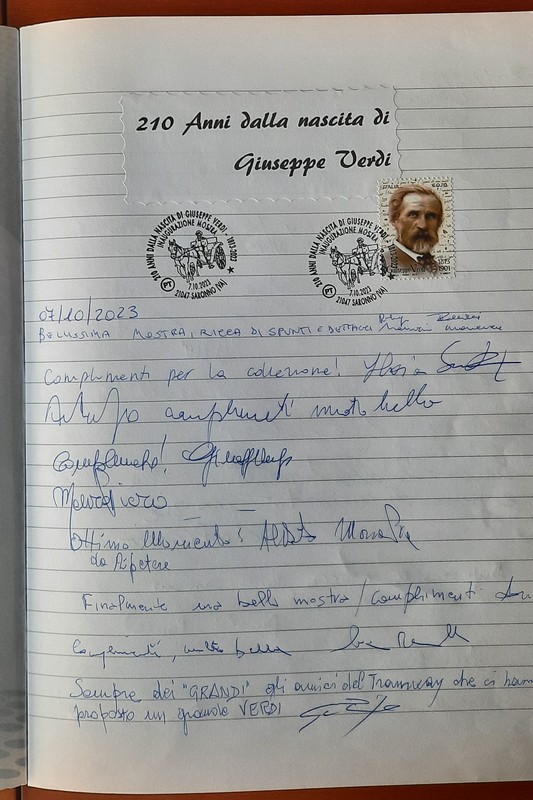 210 Anni dalla nascita di
Giuseppe Verdi
210 ANNI DALLA NASCITA DI GIUSEPPE VERDI - 1813-2023
INAUGURAZIONE MOSTRA
7.10.2023
21047 SARONNO (VA)
PT
210 ANNI DALLA NASCITA DI GIUSEPPE VERDI
INAUGURAZIONE MOSTRA
7.10.2023
21047 SARONNO (VA)
PT
ITALIA
Giuseppe Verdi 1813
1901
07/10/2023
BELLISSIMA MOSTRA, RICCA DI SPUNTI E DETTAGLI
Complimenti per la collezione!
complimenti molto bello
Complimenti!
Ottimo Momento!
da Ripetere
Finalmente una bella mostra / complimenti
Complimenti, molto bella
Sempre dei "GRANDI" gli amici del Tramway che ci hanno
proposto un grande VERDI